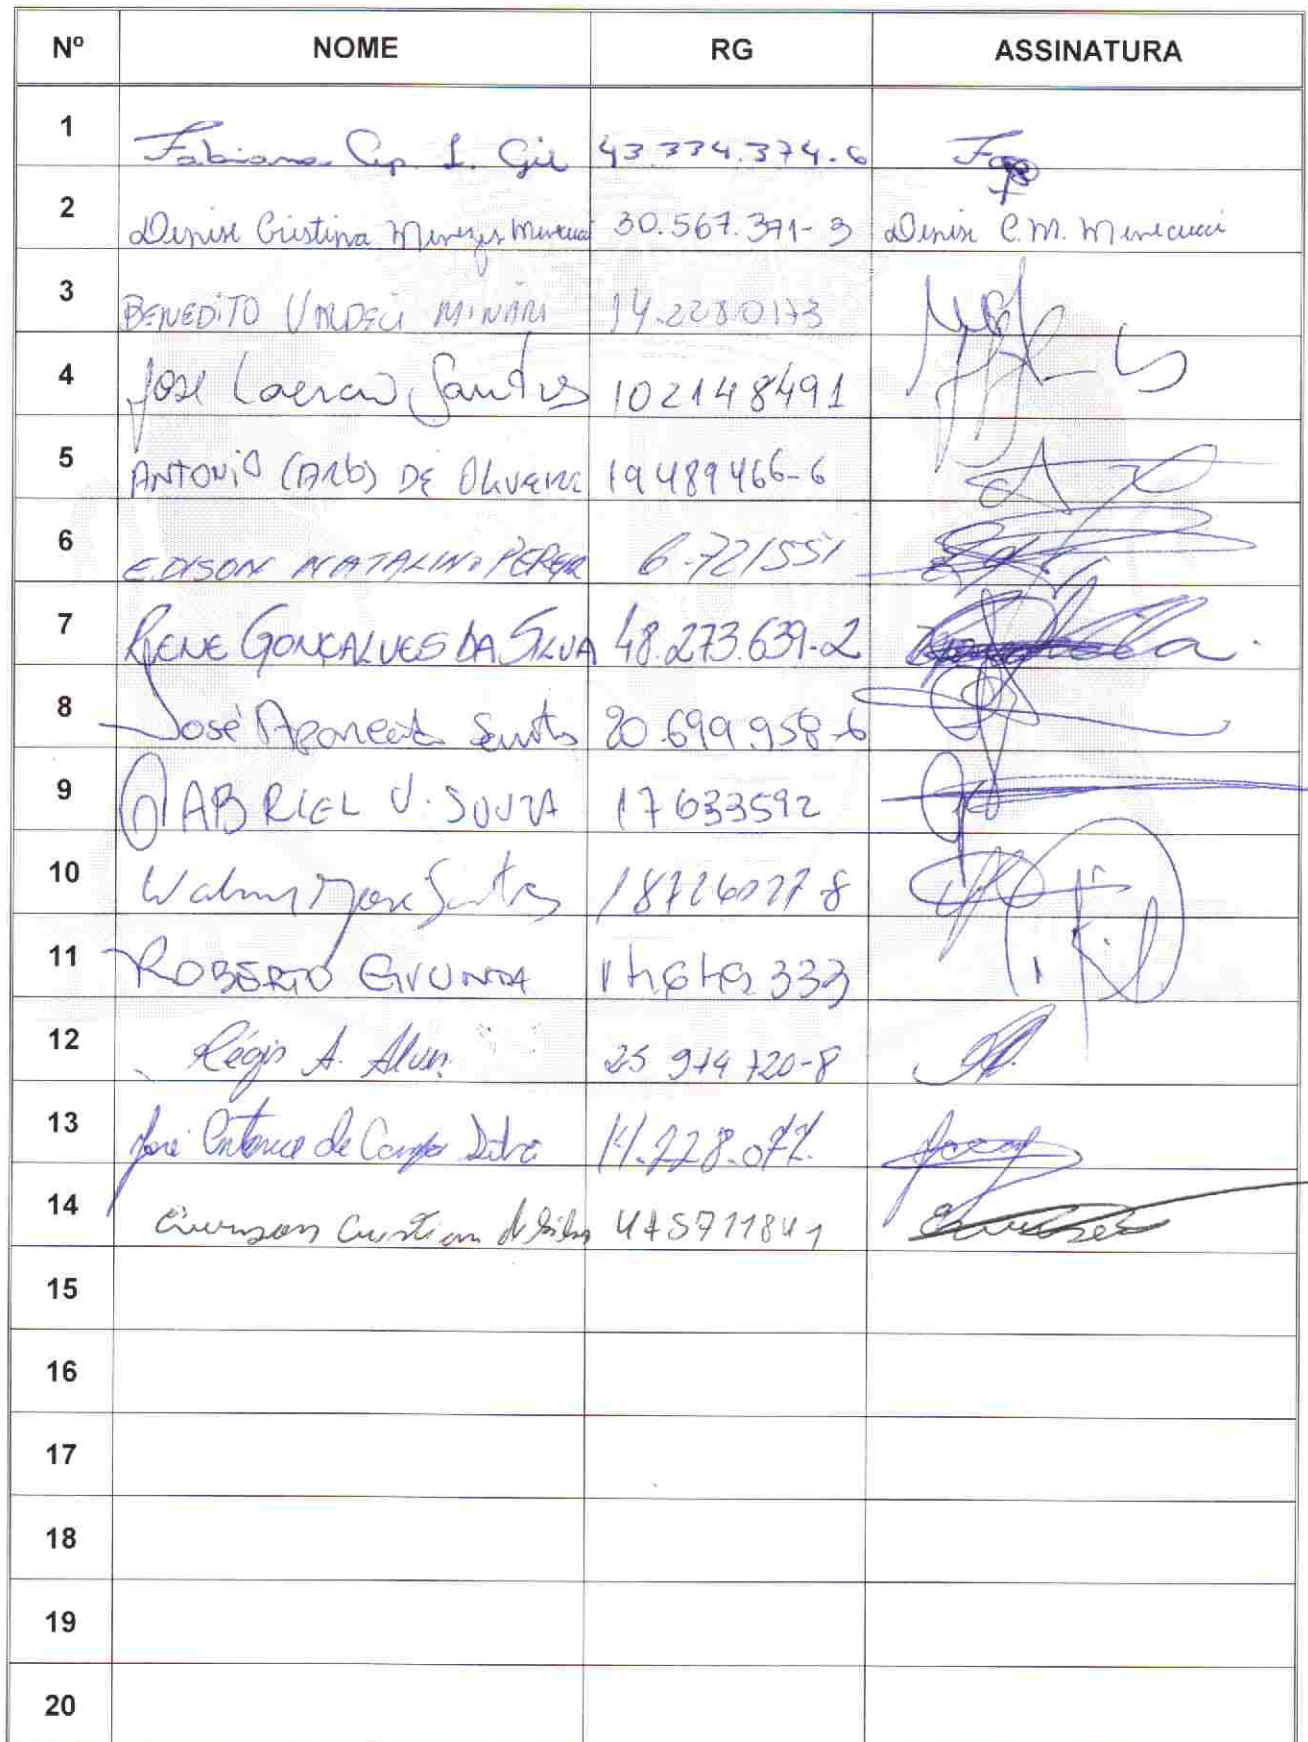 Nº NOME RG ASSINATURA
1 Fabiana Ap. L. Gil 43.334.374-6
2 Denise Cristina Menezes Menecucci 30.567.371-3 Denise C.M. Menecucci
3 BENEDITO VALDECI MINARI 14.2280173
4 José Laercio Santos 102148491
5 ANTONIO CARLOS DE OLIVEIRA 19489466-6
6 EDISON NATALINO PEREIRA 6.721551
7 RENE GONÇALVES DA SILVA 48.273.639-2
8 José Aparecido Santos 20.699.958-6
9 GABRIEL V. SOUZA 17633592
10 José Santos
11 ROBERTO 333
12 Régis A. Alves 25 974 720-8
13 José Antonio de Campos 14.228.072
14 Cristian da Silva 475711841
15
16
17
18
19
20